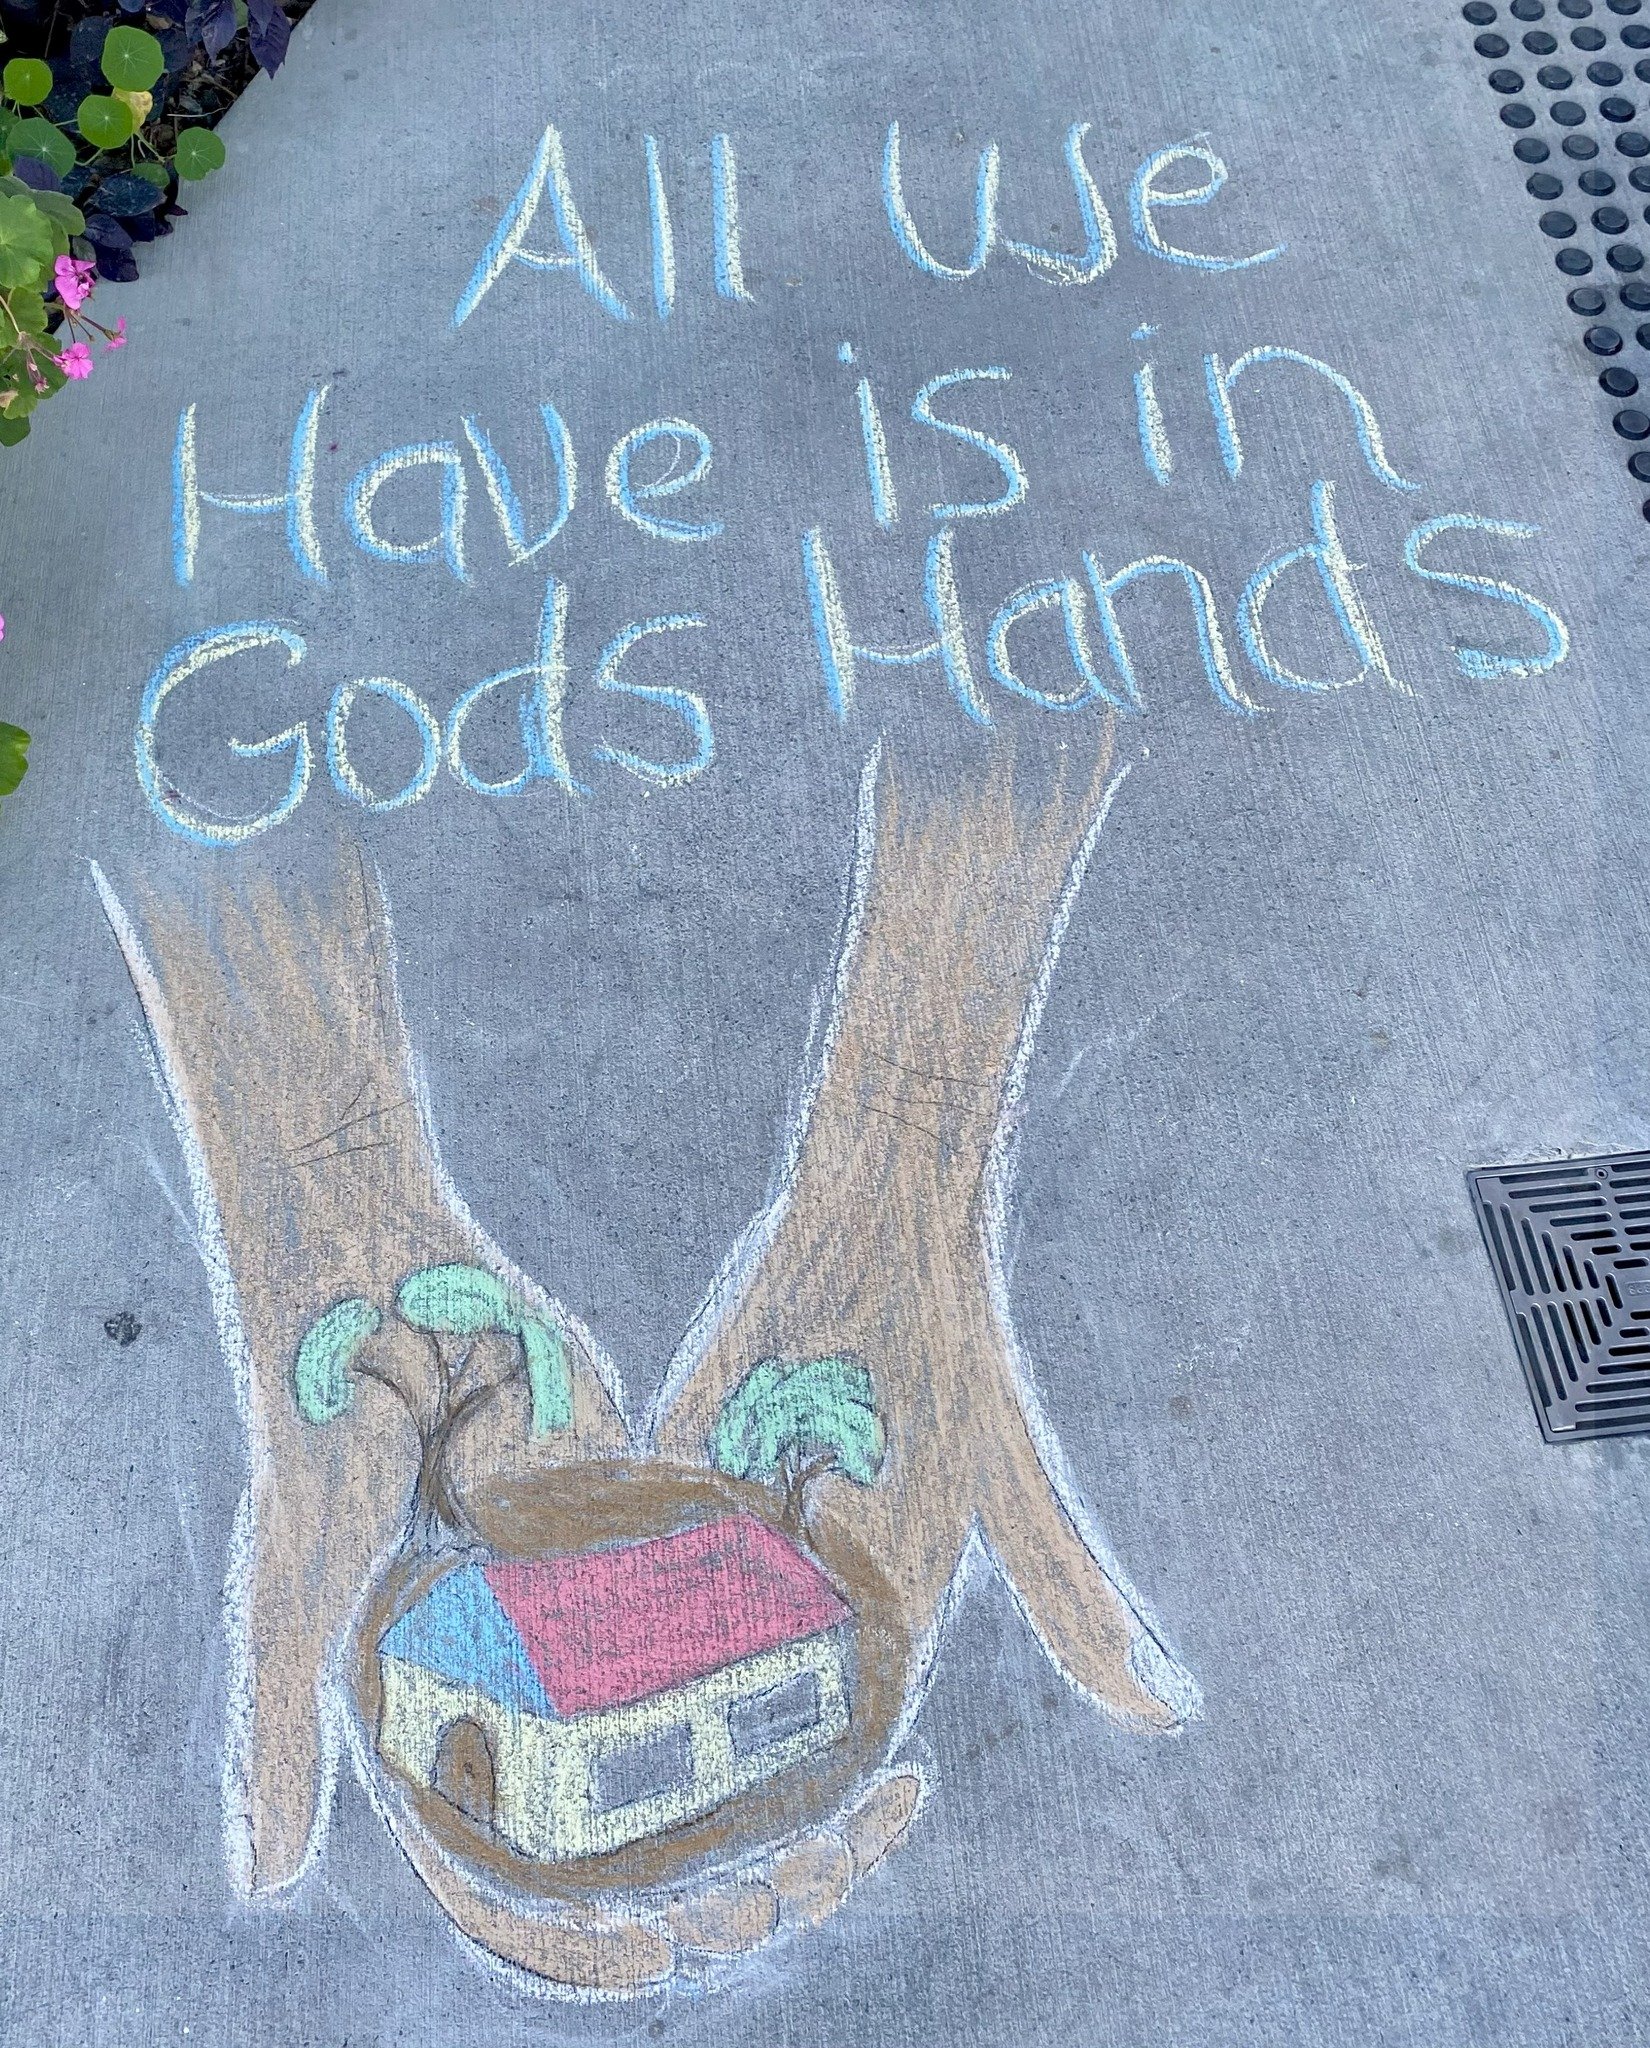 All we
Have is in
Gods Hands